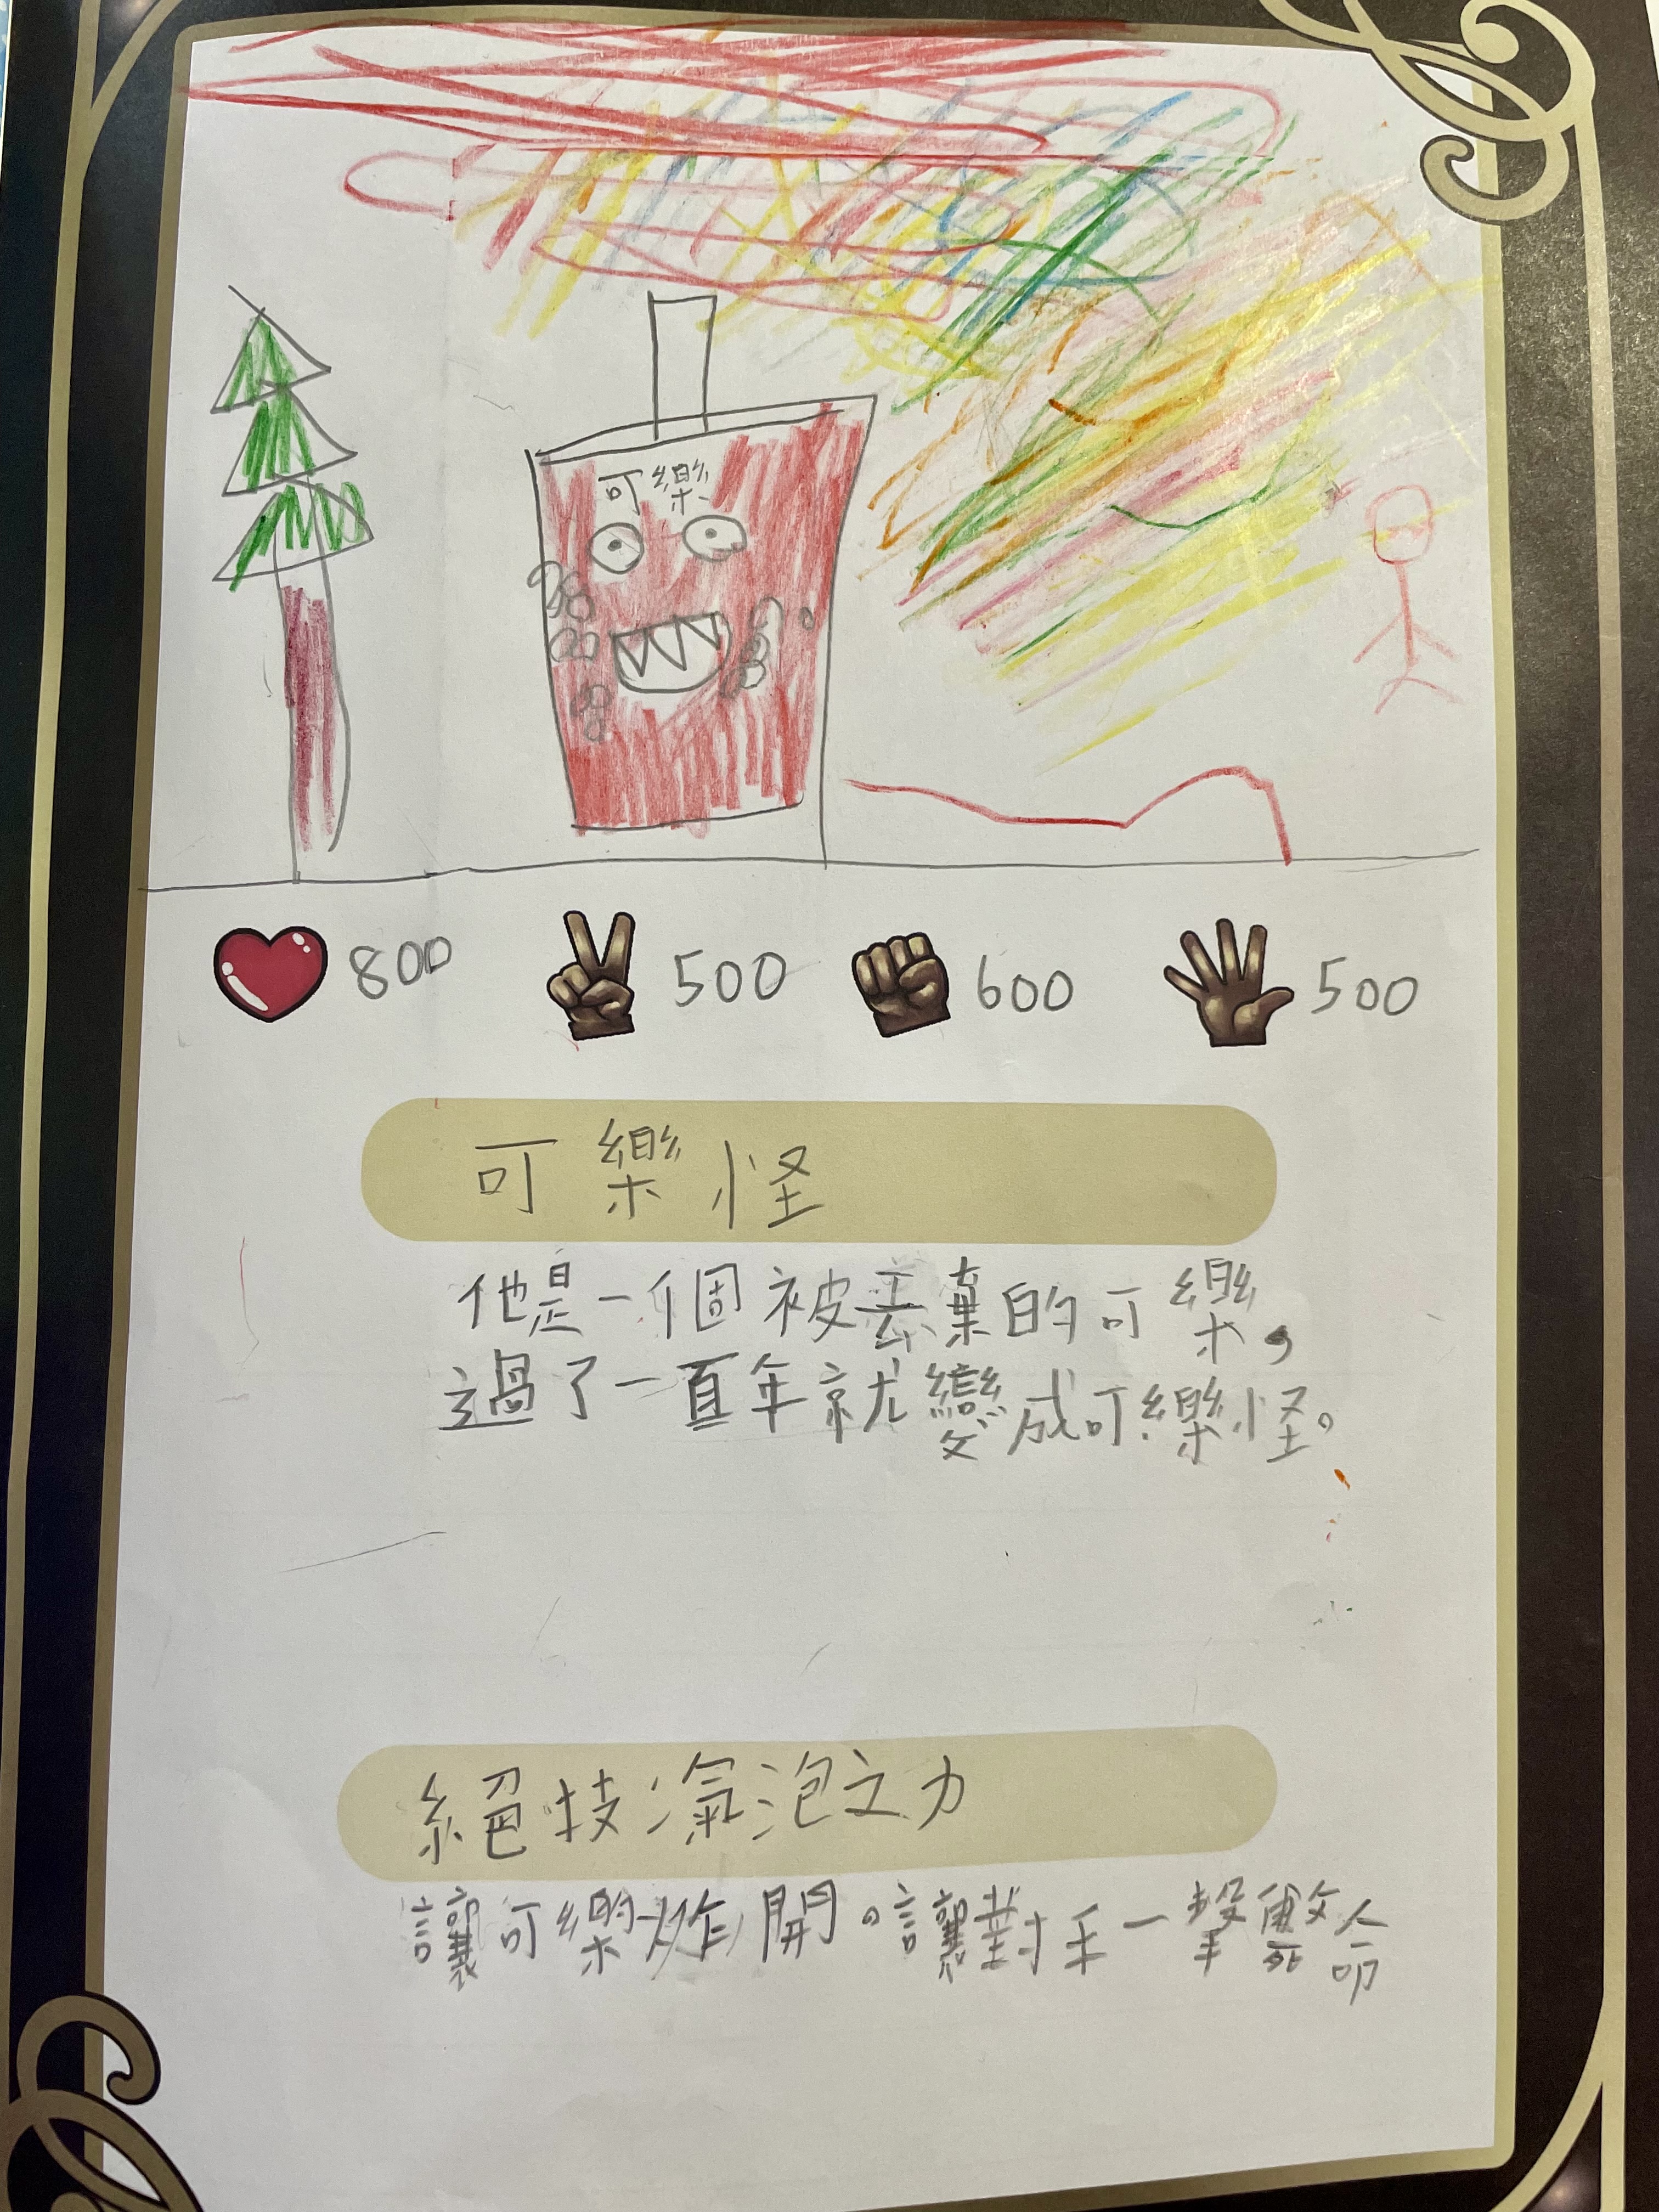 可樂
800 500 600 500
可樂怪
他是一個被丟棄的可樂,
過了一百年就變成可樂怪。
絕技氣泡之力
讓可樂炸開。讓對手一擊斃命